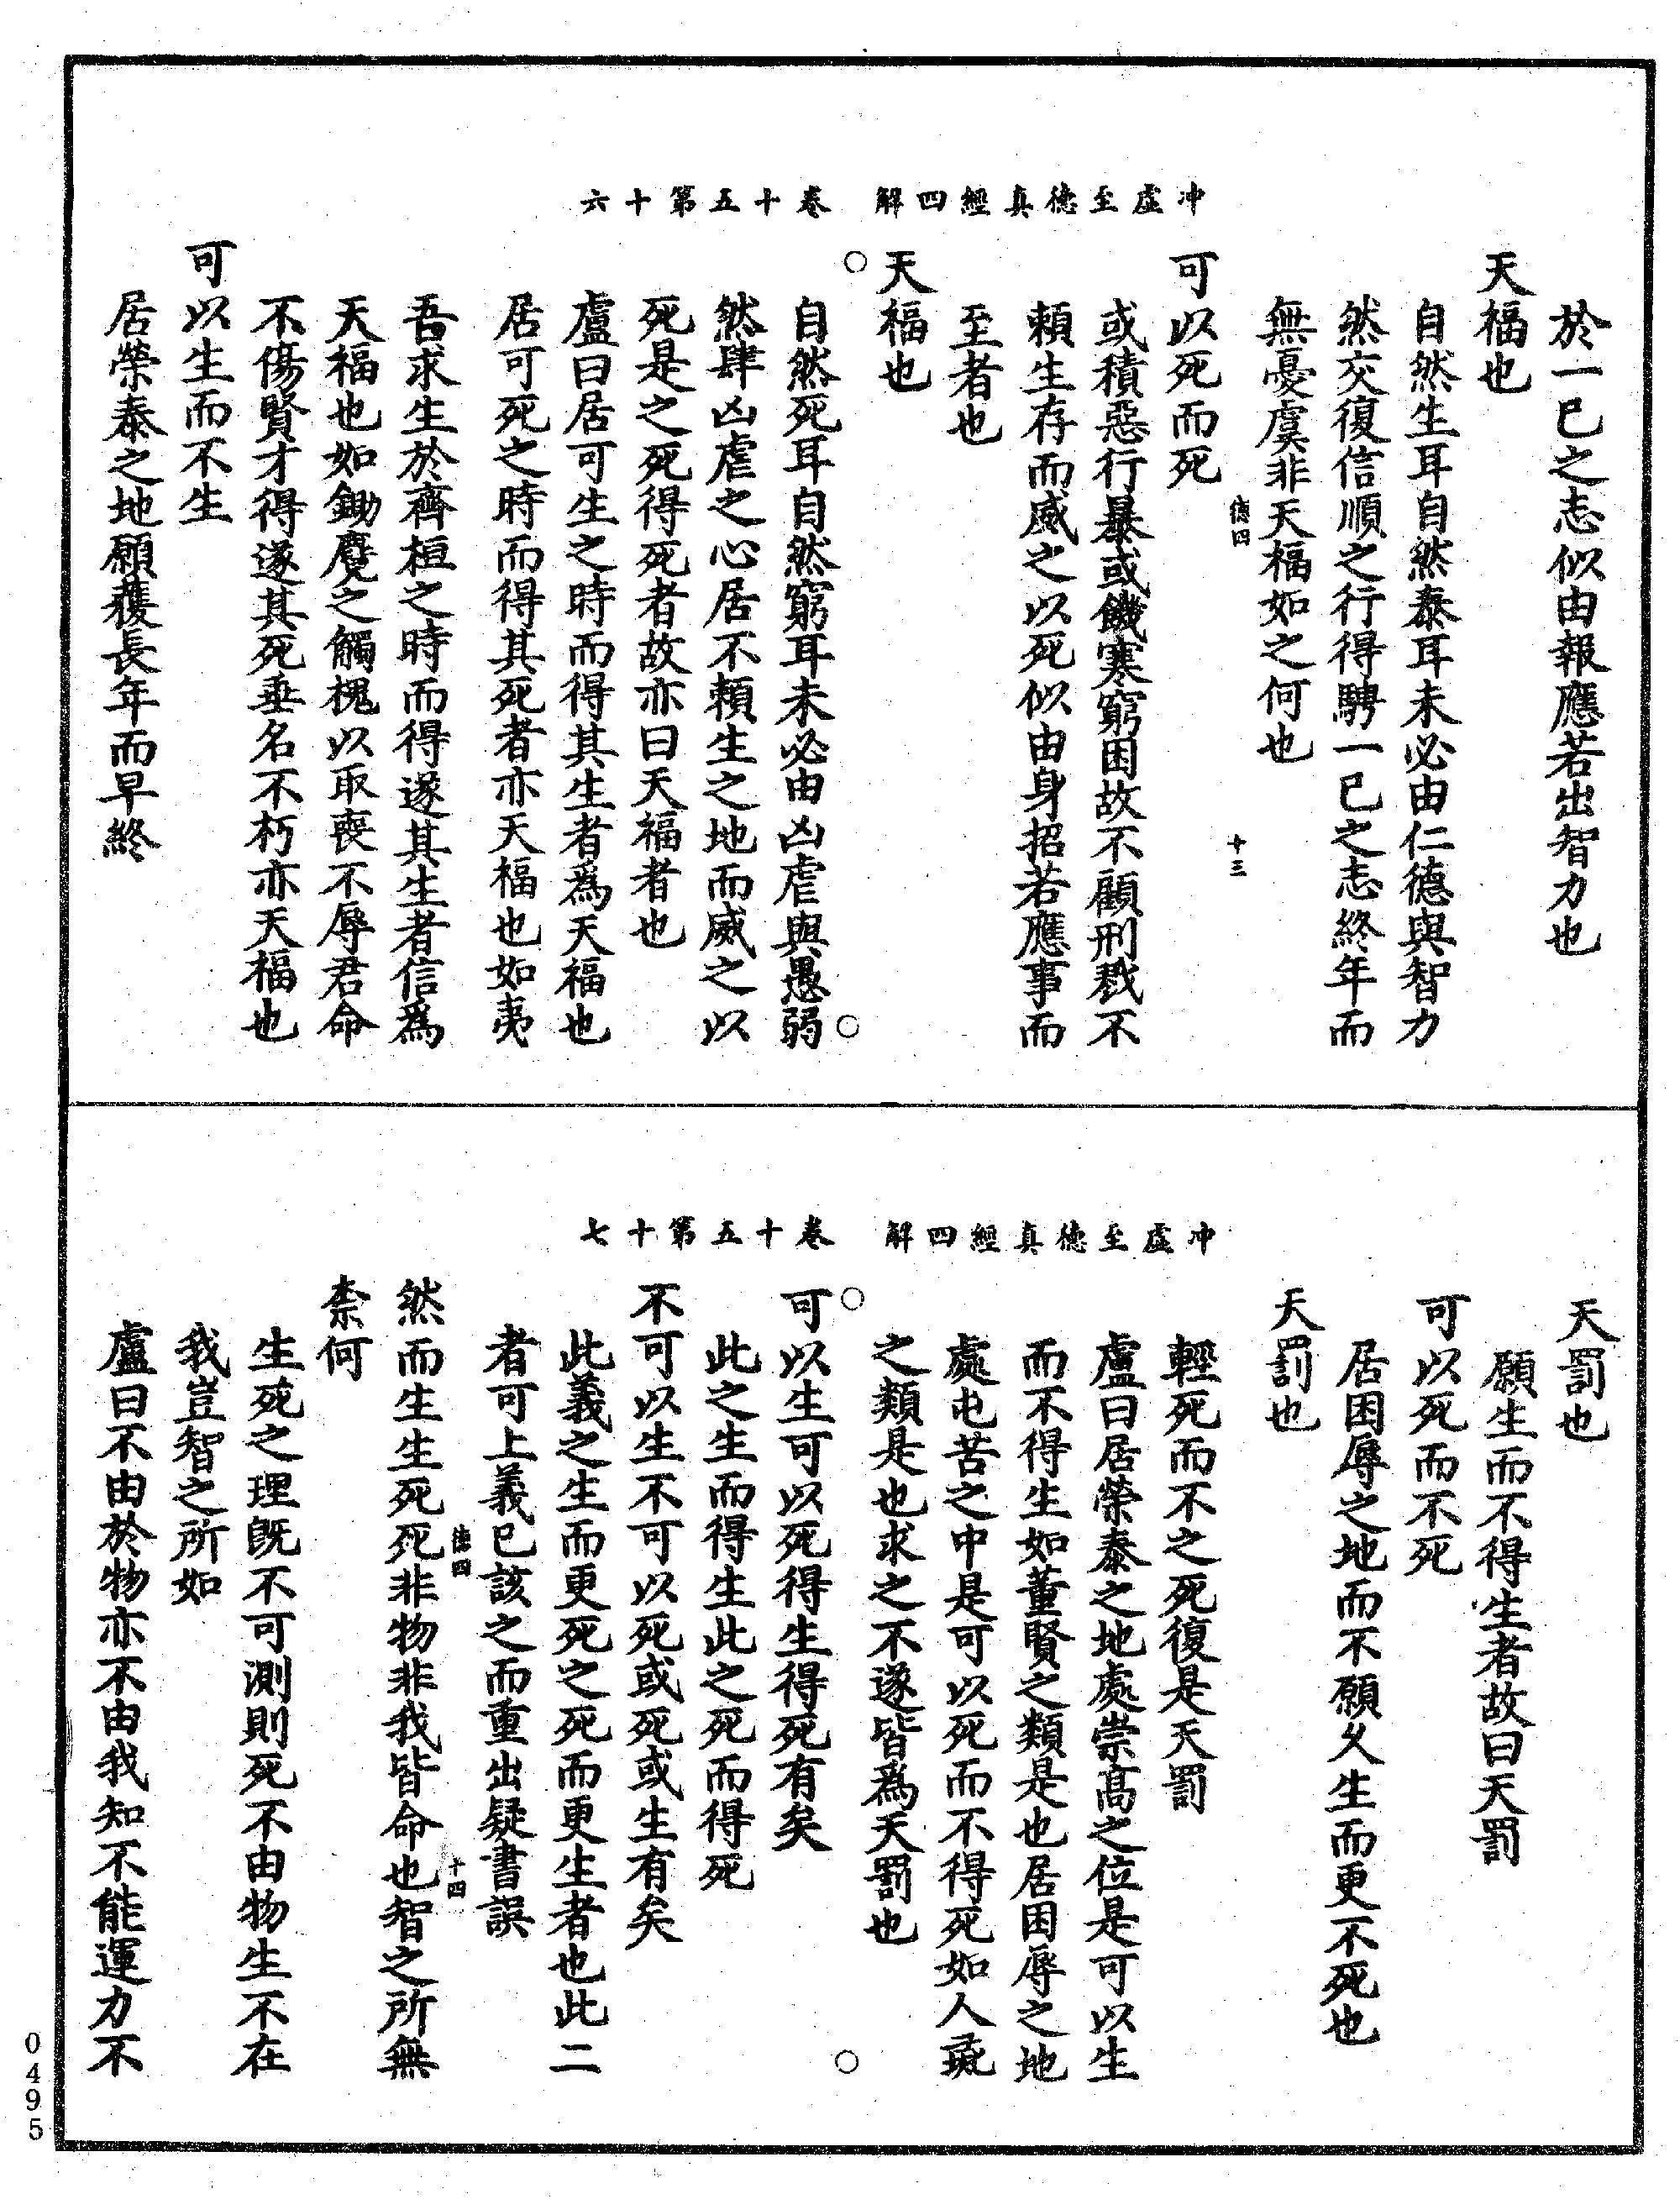 冲虛至德真經四解　卷十五第十六
於一已之志似由報應若出智力也
天福也
自然生耳自然泰耳未必由仁德與智力
然交復信順之行得騁一已之志終年而
無憂虞非天福如之何也
德四　十三
可以死而死
或積惡行暴或饑寒窮困故不顧刑戮不
賴生存而威之以死似由身招若應事而
至者也
天福也
○　○
自然死耳自然窮耳未必由凶虐與愚弱
然肆凶虐之心居不賴生之地而威之以
死是之死得死者故亦曰天福者也
盧曰居可生之時而得其生者爲天福也
居可死之時而得其死者亦天福也如夷
吾求生於齊桓之時而得遂其生者信爲
天福也如鋤麑之觸槐以取喪不辱君命
不傷賢才得遂其死垂名不朽亦天福也
可以生而不生
居榮泰之地願獲長年而早終
冲虛至德真經四解　卷十五第十七
天罰也
願生而不得生者故曰天罰
可以死而不死
居困辱之地而不願久生而更不死也
天罰也
輕死而不之死復是天罰
盧曰居榮泰之地處崇高之位是可以生
而不得生如董賢之類是也居困辱之地
處屯苦之中是可以死而不得死如人彘
之類是也求之不遂皆爲天罰也
○　○
可以生可以死得生得死有矣
此之生而得生此之死而得死
不可以生不可以死或死或生有矣
此義之生而更死之死而更生者也此二
者可上義已該之而重出疑書誤
德四　十四
然而生生死死非物非我皆命也智之所無
柰何
生死之理旣不可測則死不由物生不在
我豈智之所如
盧曰不由於物亦不由我知不能運力不
0495